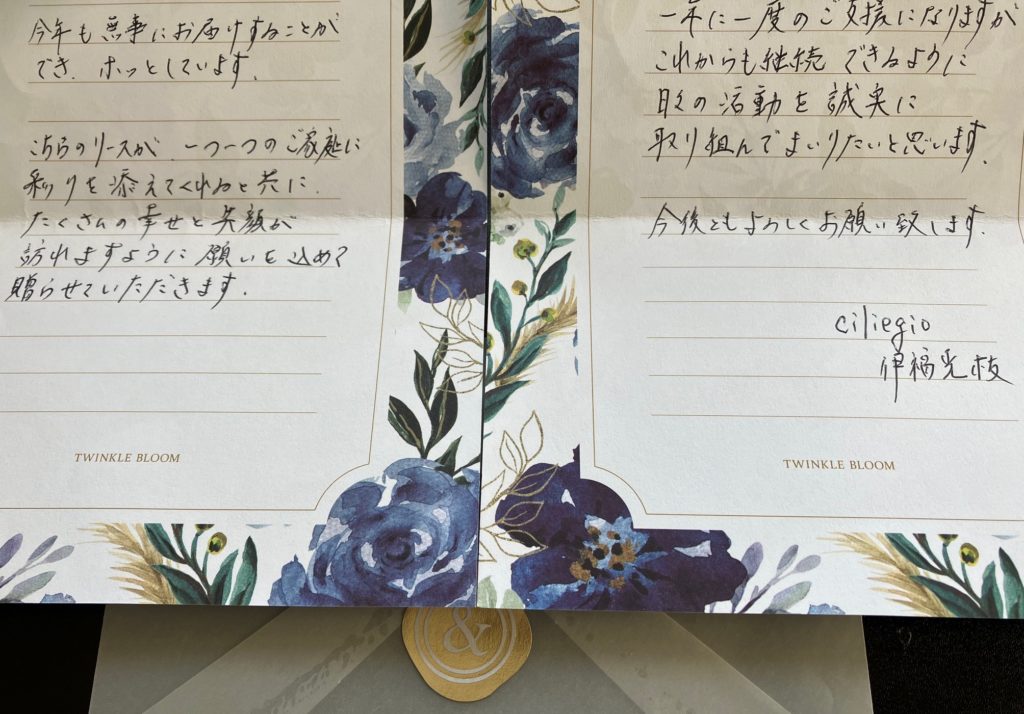 今年も無事にお届けすることが
でき、ホッとしています。
こちらのリースが、一つ一つのご家庭に
彩りを添えてくれると共に、
たくさんの幸せと笑顔が
訪れますように願いを込めて
贈らせていただきます。
TWINKLE BLOOM
一年に一度のご支援になりますが
これからも継続できるように
日々の活動を誠実に
取り組んでまいりたいと思います。
今後ともよろしくお願い致します。
ciliegio
伊福光枝
TWINKLE BLOOM
&